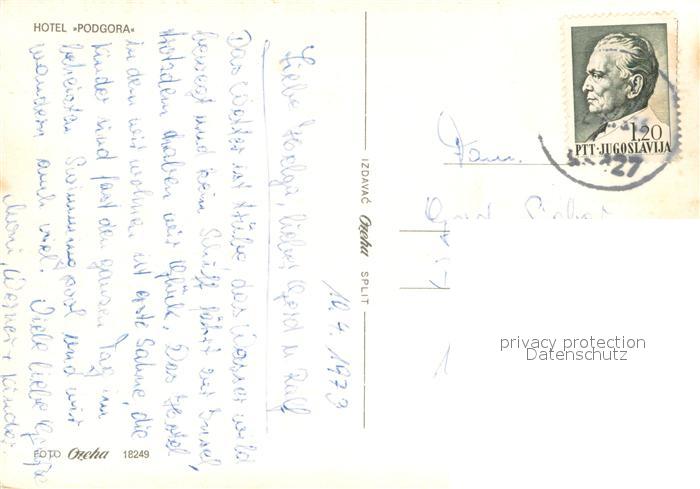 HOTEL »PODGORA«
10.4.1973
Liebe Hedy, lieber Gerd u Ralf
Das Wetter ist trübe, das Wasser wild
bewegt und kein Schiff fährt zur Insel
trotzdem haben wir Glück. Das Hotel,
in dem wir wohnen ist erste Sahne, die
Kinder sind fast den ganzen Tag im
beheizten Swimmingpool und wir
wandern auch viel. Viele liebe Grüße
Moni, Werner + Kinder.
FOTO Ozeha 18249
IZDAVAČ Ozeha SPLIT
1.20
PTT·JUGOSLAVIJA
27
Fam.
Gerd
1
privacy protection
Datenschutz